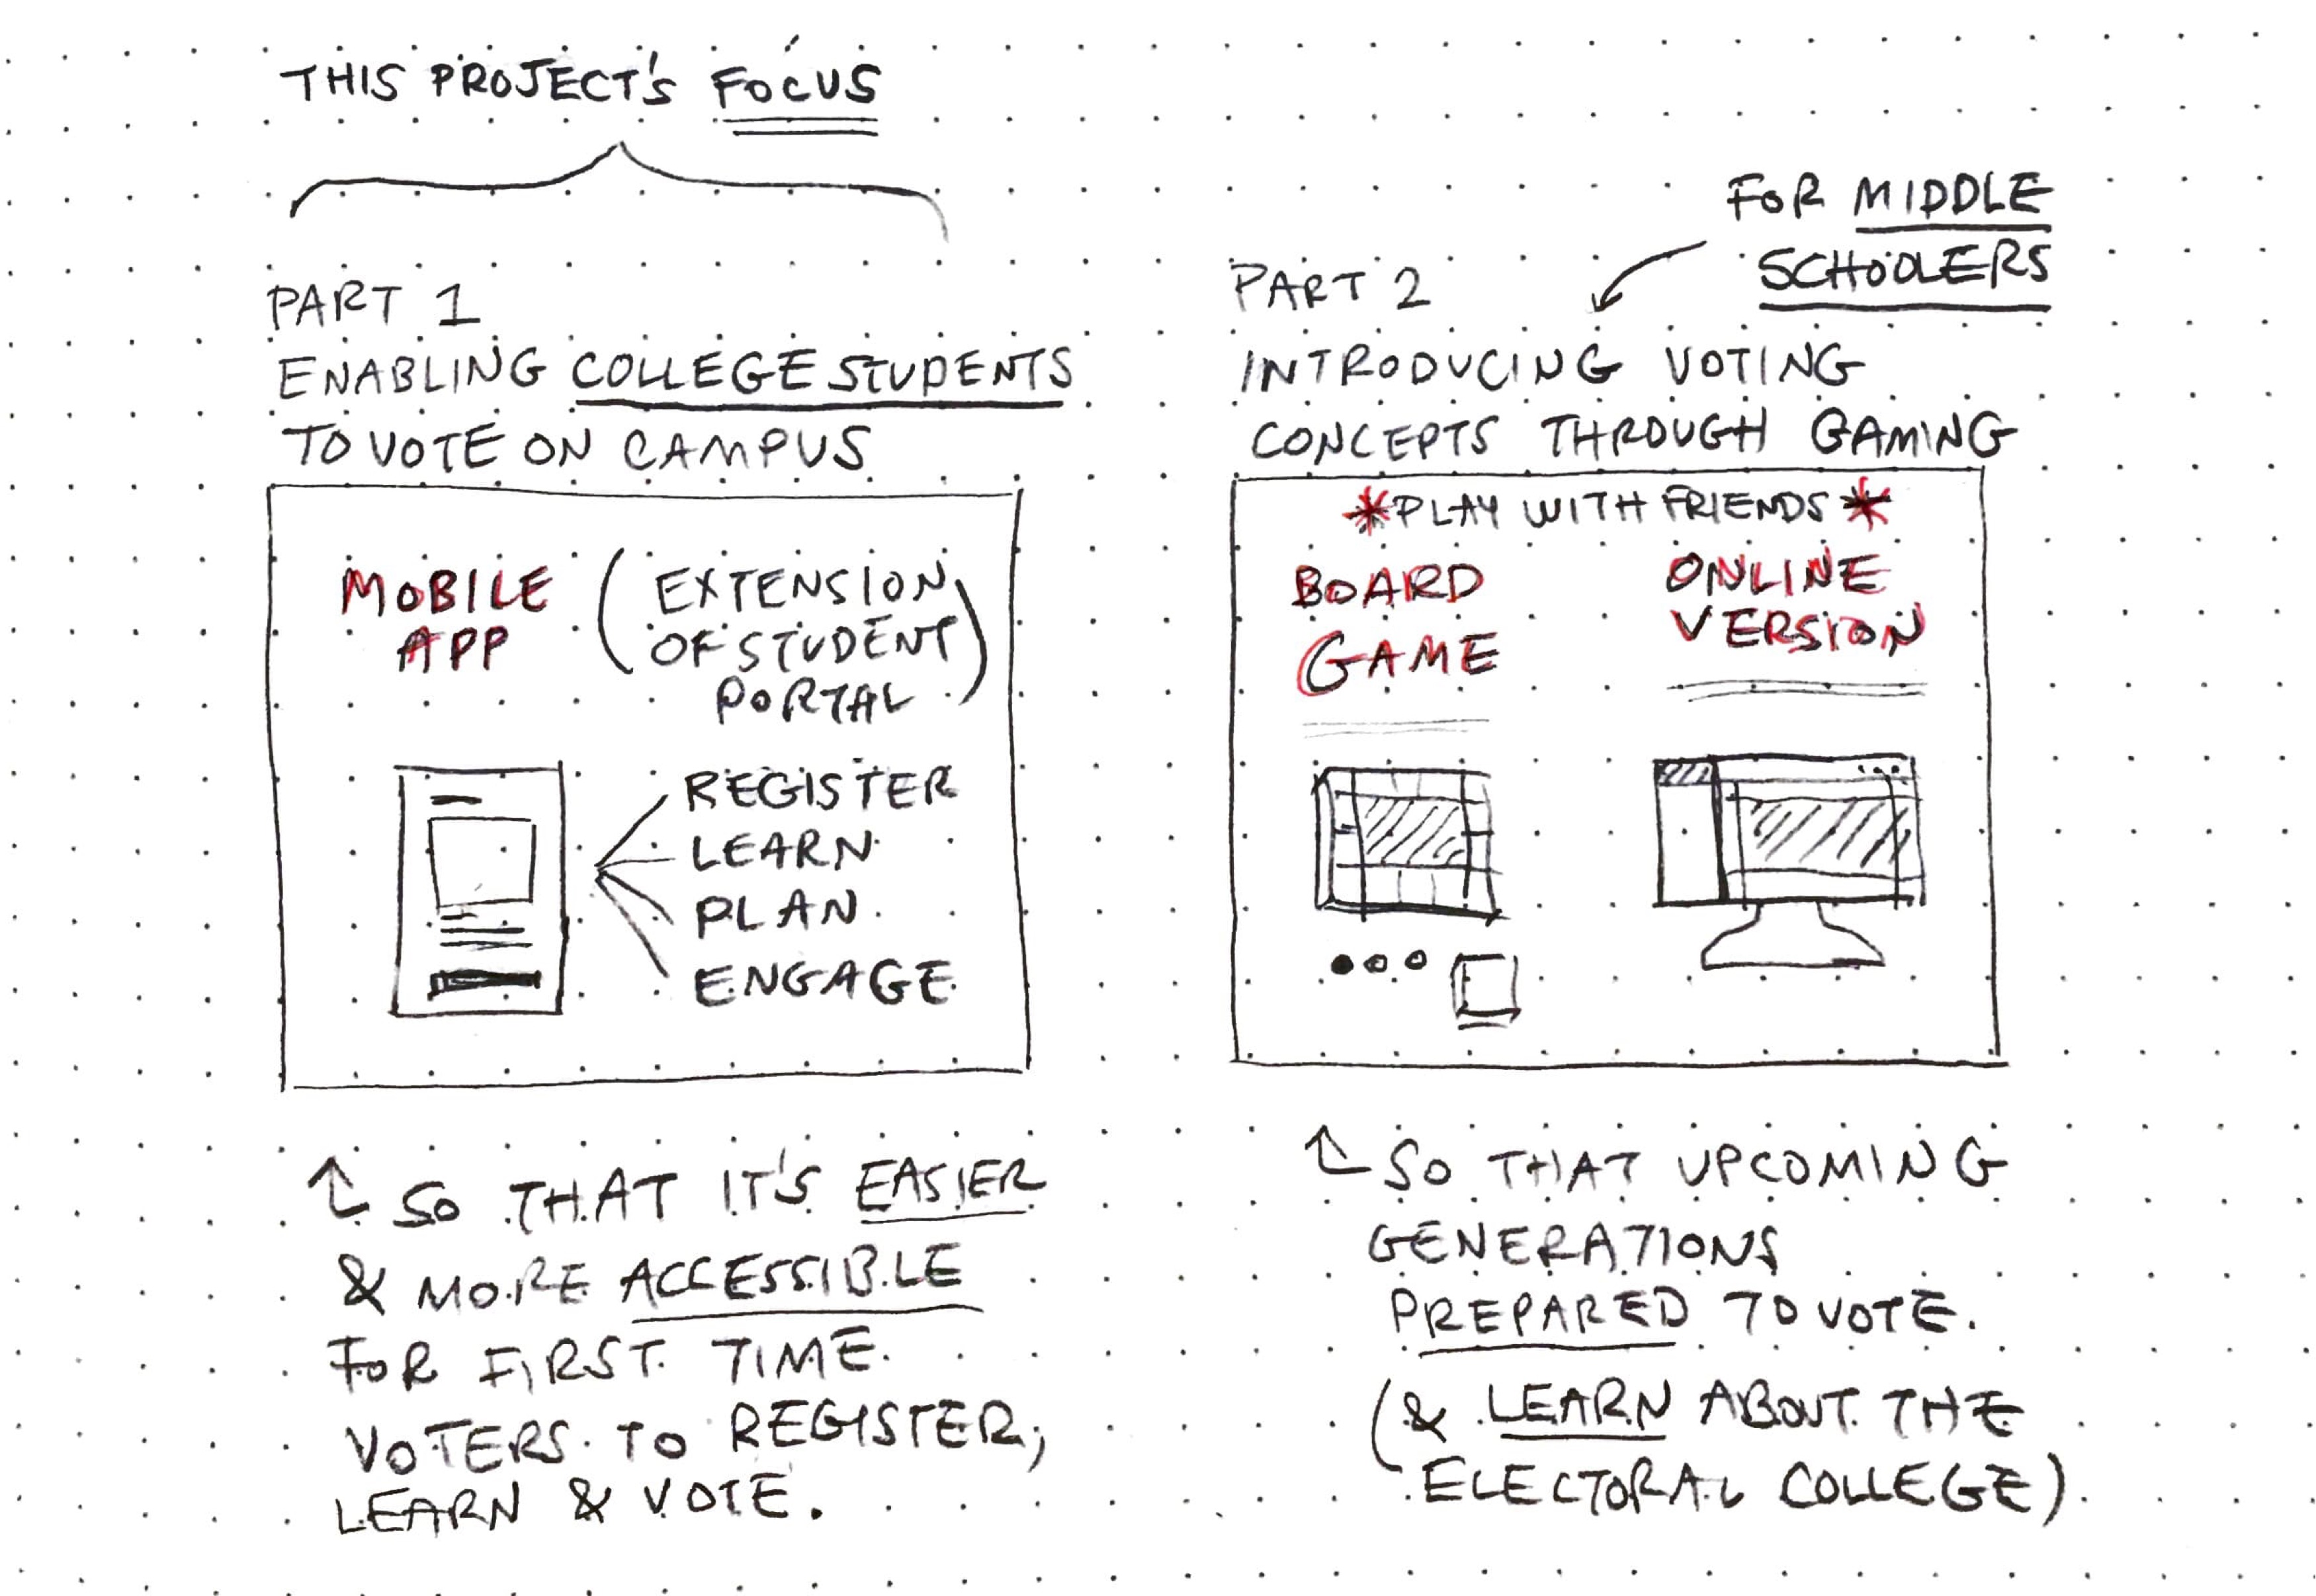 THIS PROJECT'S FOCUS
PART 1
ENABLING COLLEGE STUDENTS
TO VOTE ON CAMPUS
MOBILE
APP
(EXTENSION
OF STUDENT
PORTAL)
REGISTER
LEARN
PLAN
ENGAGE
SO THAT IT'S EASIER
& MORE ACCESSIBLE
FOR FIRST TIME
VOTERS TO REGISTER,
LEARN & VOTE.
FOR MIDDLE
SCHOOLERS
PART 2
INTRODUCING VOTING
CONCEPTS THROUGH GAMING
*PLAY WITH FRIENDS*
BOARD
GAME
ONLINE
VERSION
SO THAT UPCOMING
GENERATIONS
PREPARED TO VOTE.
(& LEARN ABOUT THE
ELECTORAL COLLEGE)